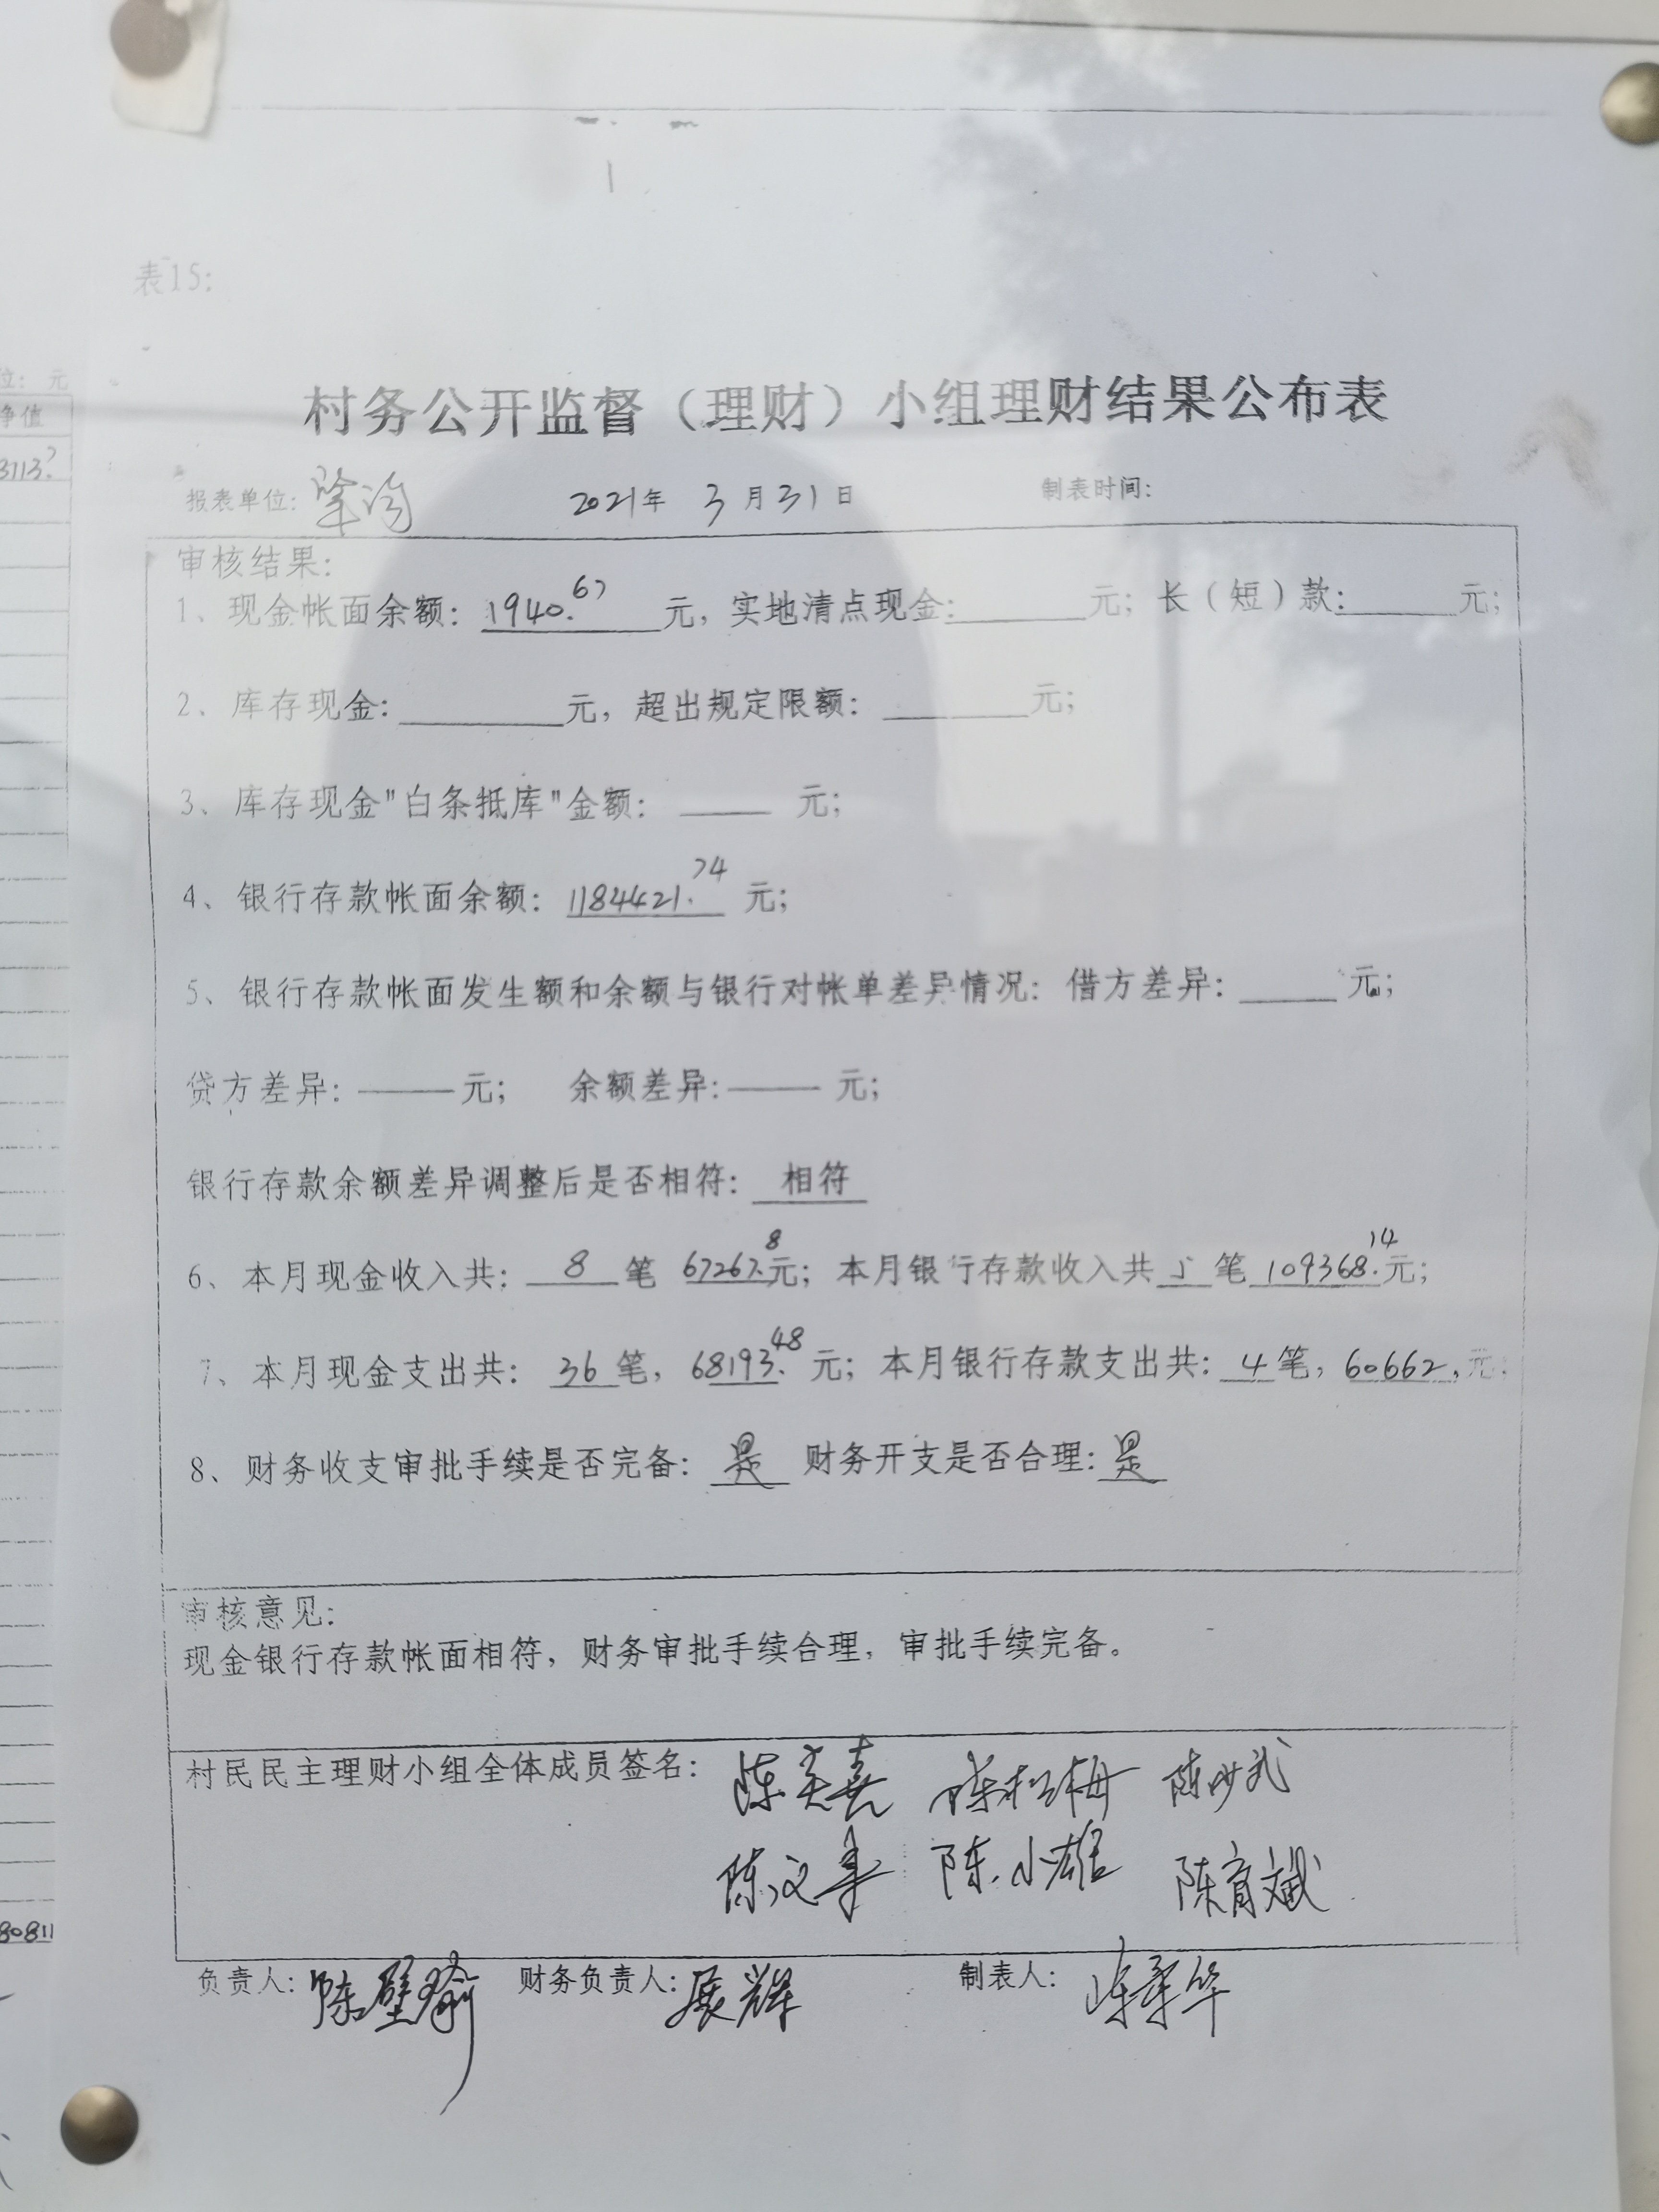 位：元
净值
表15：
村务公开监督（理财）小组理财结果公布表
报表单位： 2021年 3月31日 制表时间：
审核结果：
1、现金帐面余额：1940.67元，实地清点现金：______元；长（短）款：______元；
2、库存现金：______元，超出规定限额：______元；
3、库存现金"白条抵库"金额：——元；
4、银行存款帐面余额：1184421.74元；
5、银行存款帐面发生额和余额与银行对帐单差异情况：借方差异：____元；
贷方差异：——元； 余额差异：——元；
银行存款余额差异调整后是否相符：相符
6、本月现金收入共：8笔 67267.8元；本月银行存款收入共5笔109368.14元；
7、本月现金支出共：36笔，68193.48元；本月银行存款支出共：4笔，60662.元；
8、财务收支审批手续是否完备：是 财务开支是否合理：是
审核意见：
现金银行存款帐面相符，财务审批手续合理，审批手续完备。
村民民主理财小组全体成员签名：陈奕嘉 陈松梅
陈文 陈小雄 陈育斌
80811
负责人：陈壁瑜 财务负责人：展辉 制表人：